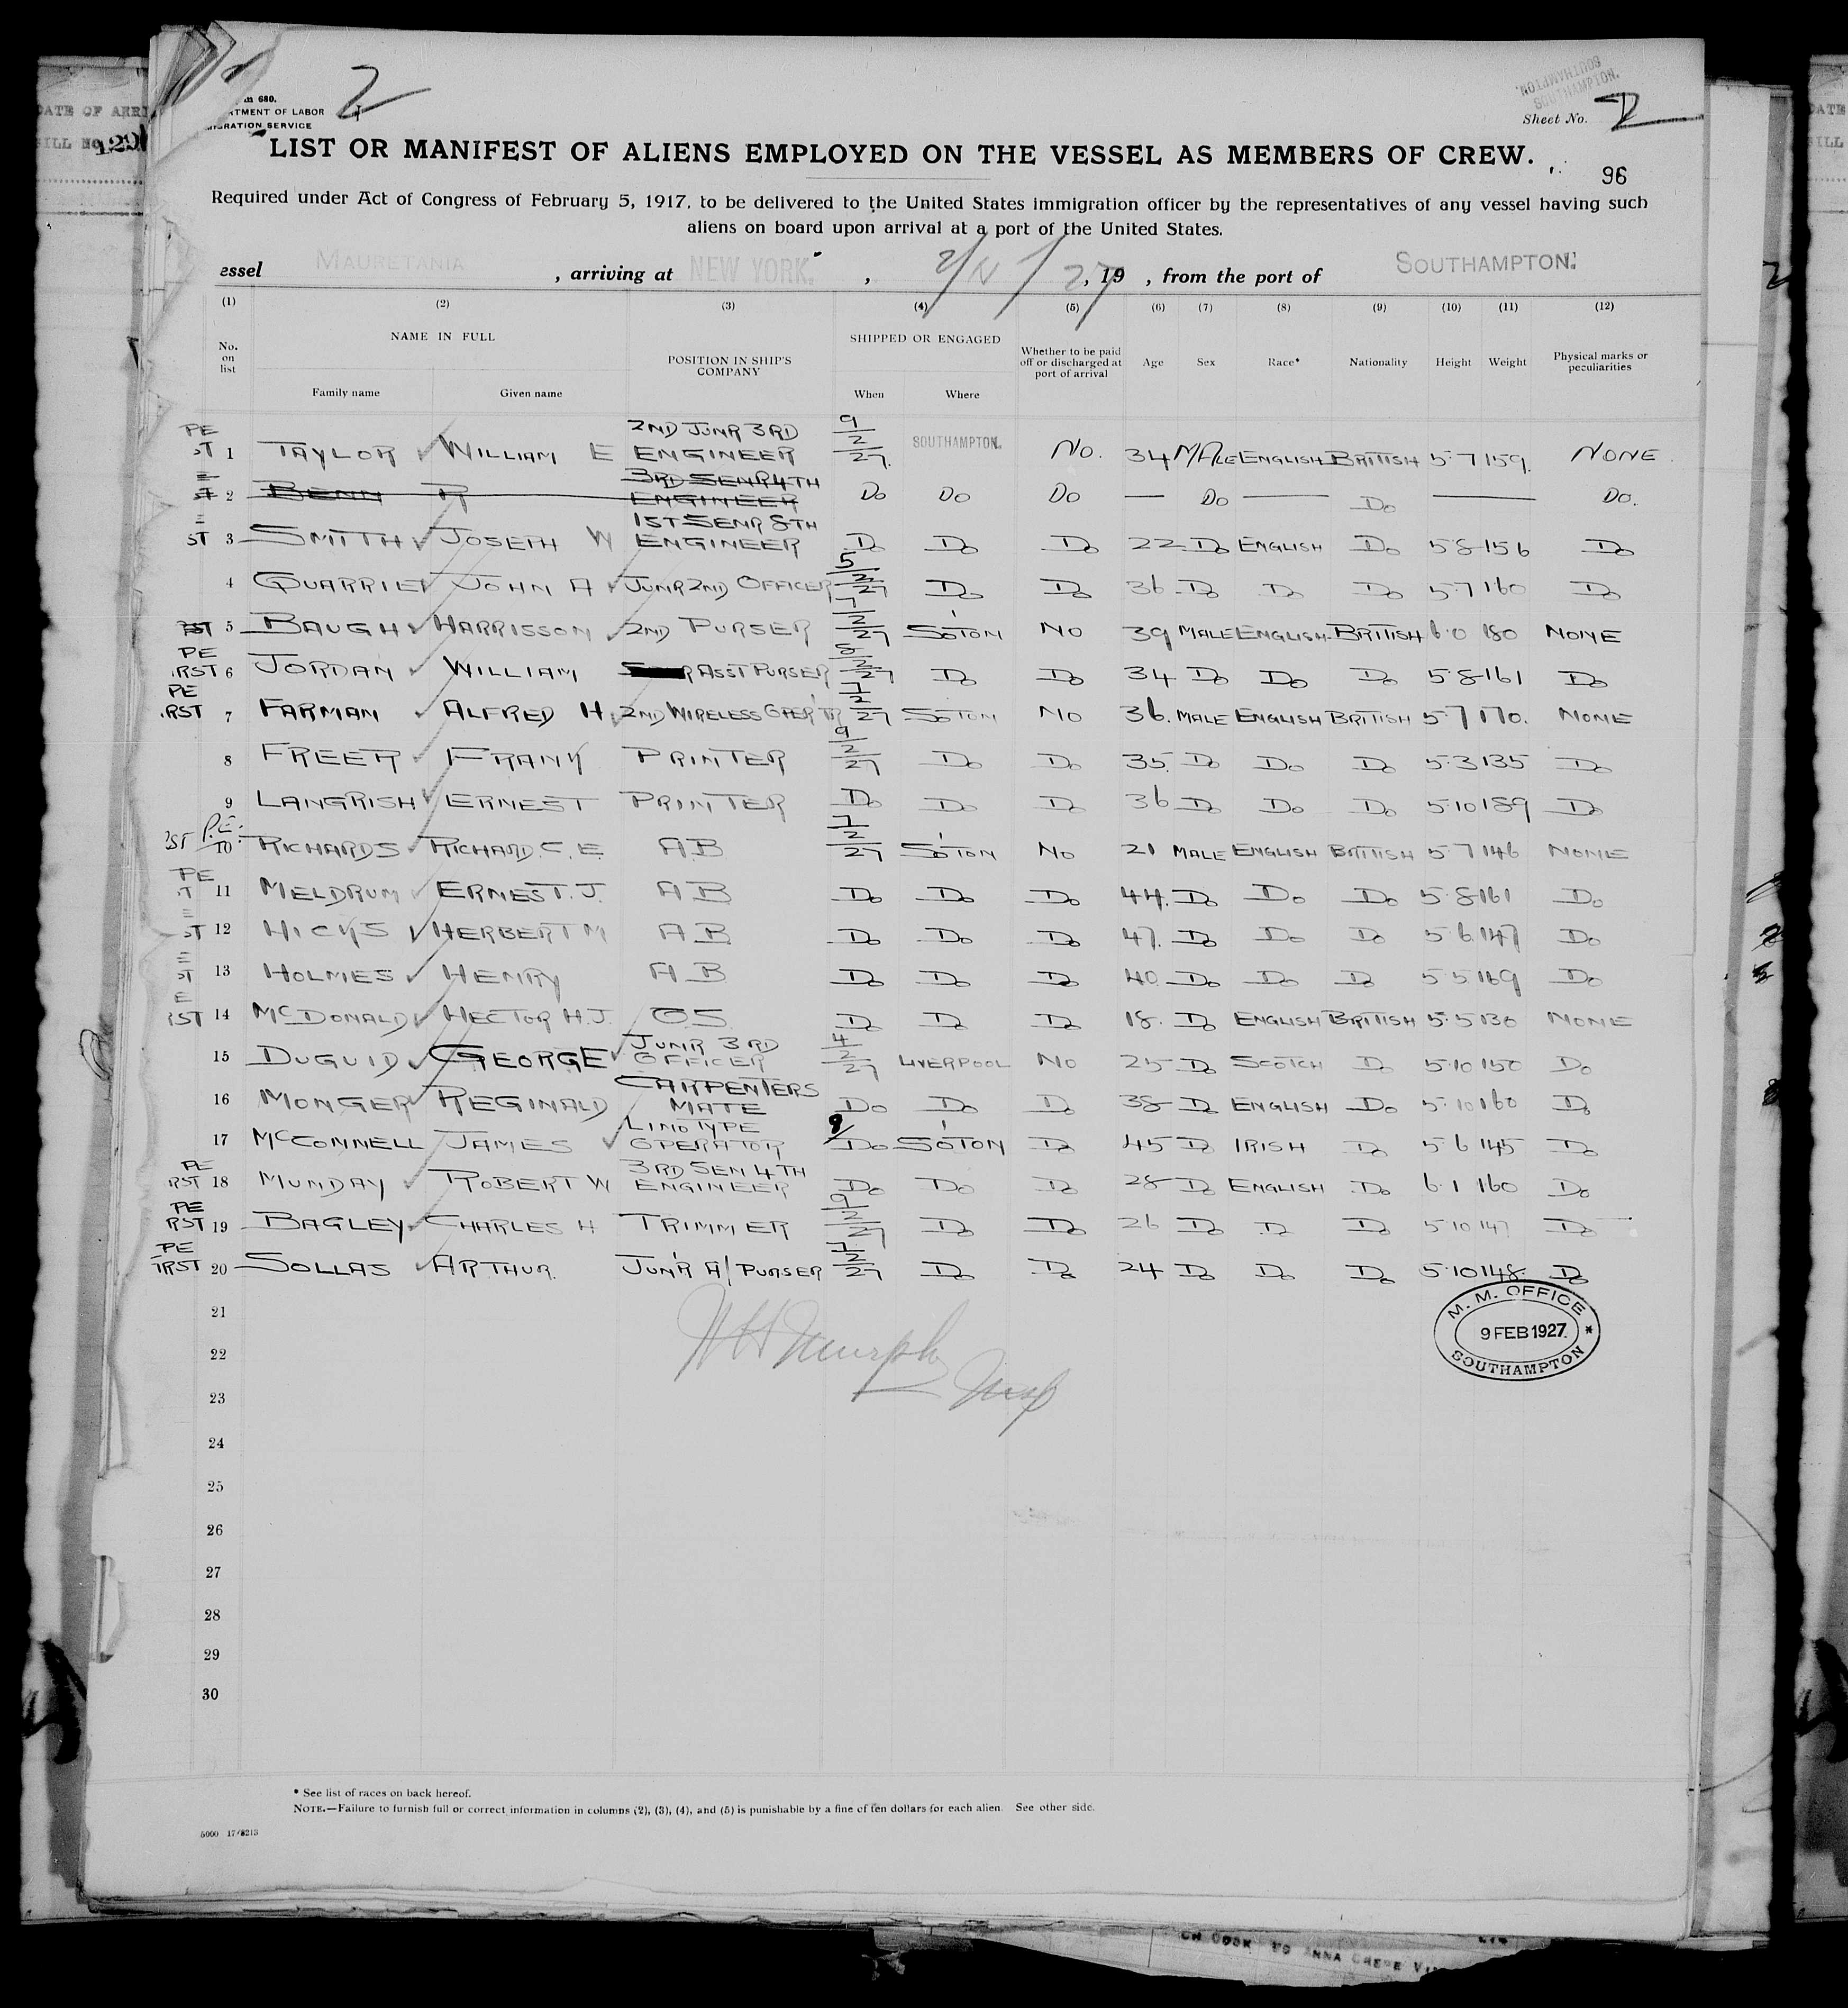 2
SOUTHAMPTON.
SOUTHAMPTON.
680.
TMENT OF LABOR
GRATION SERVICE
Sheet No. 2
LIST OR MANIFEST OF ALIENS EMPLOYED ON THE VESSEL AS MEMBERS OF CREW.
96
Required under Act of Congress of February 5, 1917, to be delivered to the United States immigration officer by the representatives of any vessel having such
aliens on board upon arrival at a port of the United States.
essel MAURETANIA , arriving at NEW YORK. , , 19 , from the port of SOUTHAMPTON.
(1) (2) (3) (4) (5) (6) (7) (8) (9) (10) (11) (12)
No. on list NAME IN FULL POSITION IN SHIP'S COMPANY SHIPPED OR ENGAGED Whether to be paid off or discharged at port of arrival Age Sex Race* Nationality Height Weight Physical marks or peculiarities
Family name Given name When Where
PE ST 1 TAYLOR WILLIAM E 2ND JUNR 3RD ENGINEER 9/2/27. SOUTHAMPTON. NO. 34 MALE ENGLISH BRITISH 5·7 159. NONE
E ST 2 BENN R 3RD SENR 4TH ENGINEER DO DO DO — DO — DO — DO.
E ST 3 SMITH JOSEPH W 1ST SENR 8TH ENGINEER DO DO DO 22 DO ENGLISH DO 5·8 156 DO
4 QUARRIE JOHN A JUNR 2ND OFFICER 5/2/27 DO DO 36 DO DO DO 5·7 160 DO
RST 5 BAUGH HARRISSON 2ND PURSER 7/2/27 SO'TON NO 39 MALE ENGLISH BRITISH 6·0 180 NONE
PE RST 6 JORDAN WILLIAM R ASST PURSER 8/2/27 DO DO 34 DO DO DO 5·8 161 DO
PE RST 7 FARMAN ALFRED H 2ND WIRELESS OPER'TR 7/2/27 SO'TON NO 36. MALE ENGLISH BRITISH 5·7 170. NONE
8 FREER FRANK PRINTER 9/2/27 DO DO 35. DO DO DO 5·3 135 DO
9 LANGRISH ERNEST PRINTER DO DO DO 36 DO DO DO 5·10 189 DO
RST P.E. 10 RICHARDS RICHARD. C. E. A.B 7/2/27 SO'TON NO 21 MALE ENGLISH BRITISH 5·7 146 NONE
PE ST 11 MELDRUM ERNEST. J. A B DO DO DO 44. DO DO DO 5·8 161 DO
E ST 12 HICKS HERBERT M A B DO DO DO 47. DO DO DO 5·6 147 DO
E ST 13 HOLMES HENRY A B DO DO DO 40. DO DO DO 5·5 169 DO
E RST 14 MCDONALD HECTOR H.J. OS DO DO DO 18. DO ENGLISH BRITISH 5·5 130 NONE
15 DUGUID GEORGE JUNR 3RD OFFICER 4/2/27 LIVERPOOL NO 25 DO SCOTCH DO 5·10 150 DO
16 MONGER REGINALD CARPENTERS MATE DO DO DO 38 DO ENGLISH DO 5·10 160 DO
17 MCCONNELL JAMES LINOTYPE OPERATOR 9/ DO SO'TON DO 45 DO IRISH DO 5·6 145 DO
PE RST 18 MUNDAY ROBERT W 3RD SEN 4TH ENGINEER DO DO DO 28 DO ENGLISH DO 6·1 160 DO
PE RST 19 BAGLEY CHARLES H TRIMMER 9/2/27 DO DO 26 DO DO DO 5·10 147 DO
PE IRST 20 SOLLAS ARTHUR. JUN'R A/ PURSER 7/2/27 DO DO 24 DO DO DO 5·10 148. DO
21
22
23
24
25
26
27
28
29
30
M. M. OFFICE
9 FEB 1927.
SOUTHAMPTON
* See list of races on back hereof.
NOTE.—Failure to furnish full or correct information in columns (2), (3), (4), and (5) is punishable by a fine of ten dollars for each alien. See other side.
5000 17/8213
DATE OF ARR
BILL NO. 129